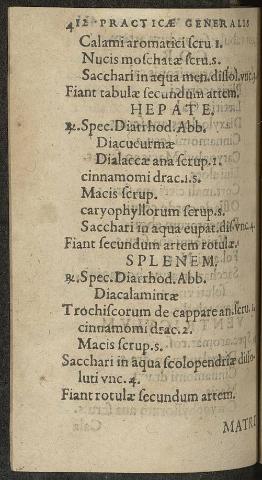 412 PRACTICÆ GENERALIS
Calami aromatici scru 1.
Nucis moschatæ scru.s.
Sacchari in aqua men.dissol.vnc.4
Fiant tabulæ secundum artem.
HEPATE.
℞.Spec.Diarrhod.Abb.
Diacucurmæ
Dialaccæ ana scrup.1.
cinnamomi drac.1.s.
Macis scrup.
caryophyllorum scrup.s.
Sacchari in aqua eupat.dis.vnc.4
Fiant secundum artem rotulæ.
SPLENEM.
℞.Spec.Diarrhod.Abb.
Diacalamintæ
Trochiscorum de cappare an.scru.1.
cinnamomi drac.2.
Macis scrup.s.
Sacchari in aqua scolopendriæ disso-
luti vnc.4.
Fiant rotulæ secundum artem.
MATRI